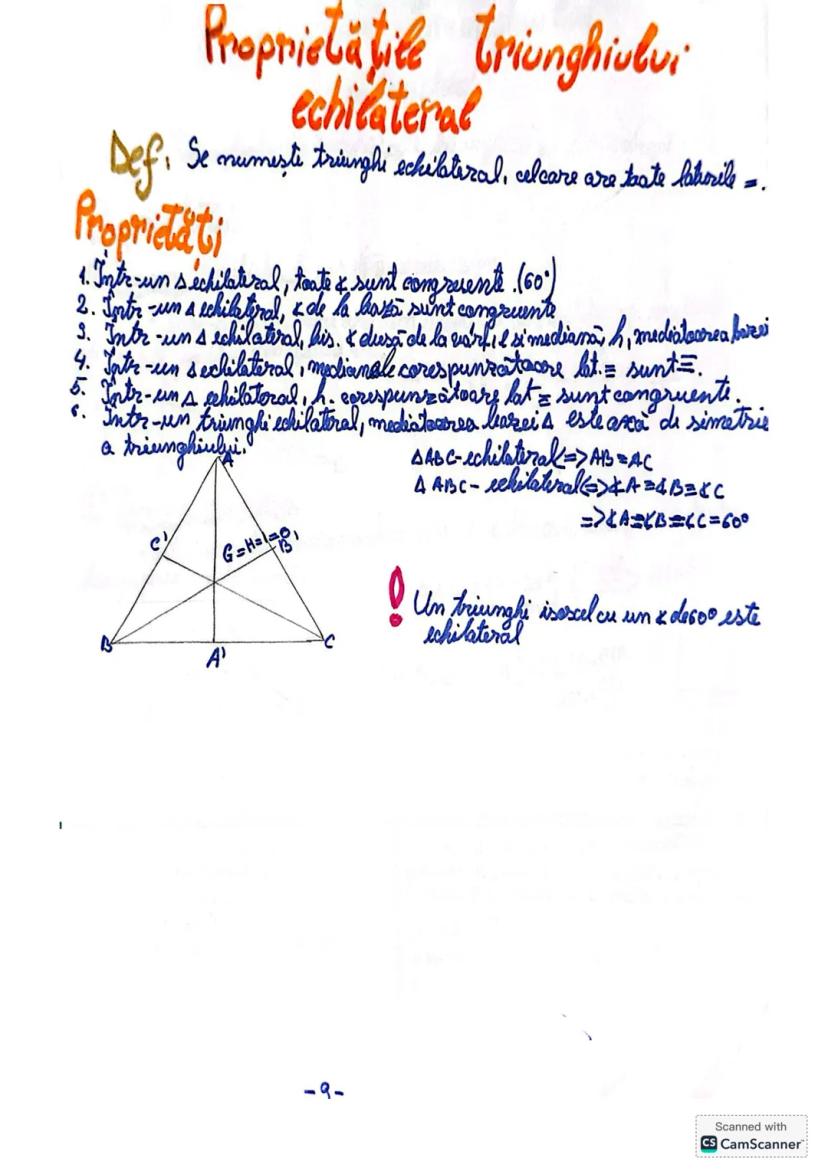 Proprietățile triunghiului
echilateral
Def: Se numește triunghi echilateral, cel care are toate laturile =.
Proprietăți
1. Într-un △ echilateral, toate ∢ sunt congruente. (60°)
2. Într-un △ echilateral, ∢ de la bază sunt congruente
3. Intr-un △ echilateral, bis. ∢ dusă de la vârf, e si mediană, h, mediatoarea bazei
4. Intr-un △ echilateral, medianele corespunzătoare lat. ≡ sunt ≡.
5. Intr-un △ echilateral, h. corespunzătoare lat ≡ sunt congruente.
6. Intr-un triunghi echilateral, mediatoarea bazei △ este axă de simetrie
a triunghiului.
△ABC-echilateral<=>AB=AC
△ABC-echilateral<=>∢A=∢B=∢C
=>∢A≡∢B≡∢C=60°
A
C'
G=H=I=O
B'
B
A'
C
! Un triunghi isoscel cu un ∢ de 60° este
echilateral
-9-
Scanned with
CS CamScanner